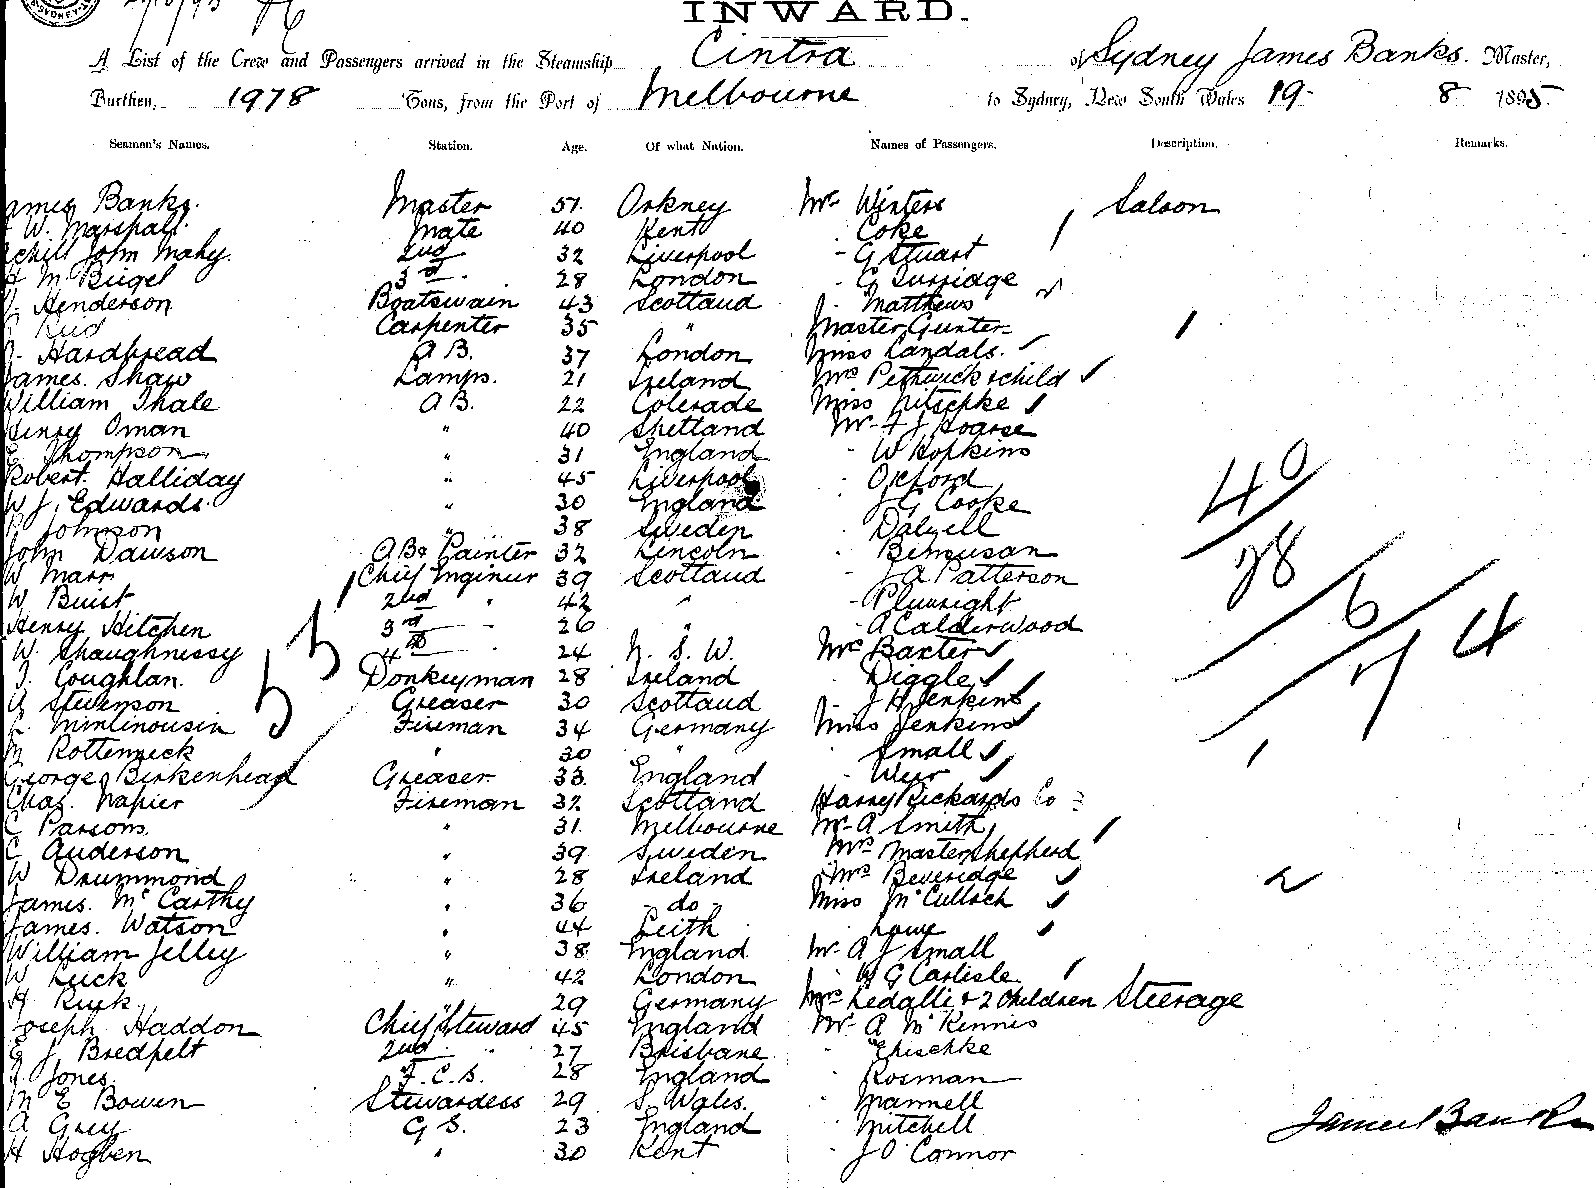 INWARD.
A List of the Crew and Passengers arrived in the Steamship Cintra of Sydney James Banks. Master,
Burthen, 1978 Tons, from the Port of Melbourne to Sydney, New South Wales 19 8 1895
Seamen's Names. Station. Age. Of what Nation. Names of Passengers. Description. Remarks.
ames Banks. Master 51. Orkney Mr Winters Saloon
W. Marshall. Mate 40 Kent Coke
John Mahy. 2nd 32 Liverpool - G Stuart
H M Biegel 3rd 28 London - G Surridge
J. Henderson Boatswain 43 Scotland Matthews
Reid Carpenter 35 " Master Gunter
Hardbread A B. 37 London Miss Landals.
James. Shaw Lamps. 21 Ireland Mrs Pethwick & child
William Thale A B. 22 Miss Nitschke
Henry Oman " 40 Shetland Mr F J Hoarse
Thompson " 31 England - W Hopkins
Robert. Halliday " 45 Liverpool Oxford
W J. Edwards. " 30 England J G Cooke
Johnson " 38 Sweden Dalzell
John Dawson AB & Painter 32 Lincoln Benjusan
W Marr Chief Engineer 39 Scotland - J A Patterson
W Buist 2nd " 42 " - Plowright
Henry Hitchen 3rd " 26 " - A Calderwood
W. Shaughnessy 4th 24 N. S. W. Mrs Baxter
Coughlan. Donkeyman 28 Ireland Diggle
A Stevenson Greaser 30 Scotland - J H Jenkins
Fireman 34 Germany Miss Jenkins
" 30 " Small
George Birkenhead Greaser 33 England - Weir
Chas. Napier Fireman 32 Scotland Harry Rickards Co
C Parsons. " 31. Melbourne Mr A Smith
C Anderson " 39 Sweden Mrs Master Shepherd
W Drummond " 28 Ireland Mrs Beveridge
James. McCarthy " 36 - do - Miss McCulloch
James. Watson " 44 Leith Lowe
William Jelley " 38 England Mr A J Small
W Luck " 42 London W G Carlisle
H Ruck " 29 Germany Mrs Ledalli & 2 Children Steerage
Joseph Haddon Chief Steward 45 England Mr A McKennis
E J. Bredfelt 2nd " 27 Brisbane
Jones. F. C. S. 28 England Rosman
M E Bowen Stewardess 29 S. Wales. Mannell
A Grey G S. 23 England Mitchell
H Hogben " 30 Kent J O'Connor
40
38
6
4
2
James Banks